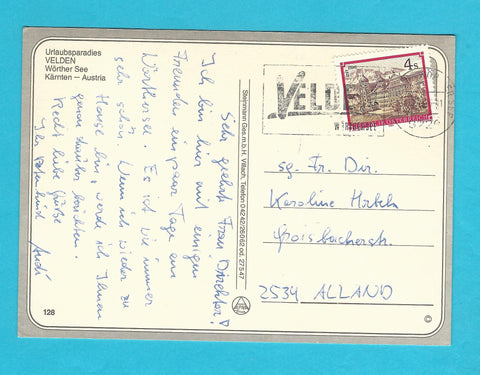 Urlaubsparadies
VELDEN
Wörther See
Kärnten – Austria
Sehr geehrte Frau Direktor!
Ich bin hier mit einigen
Freunden ein paar Tage am
Wörthersee. Es ist wie immer
sehr schön. Wenn ich wieder zu
Hause bin, werde ich Ihnen
genau darüber berichten.
Recht liebe Grüße
Ihr
128
Steinmann Ges.m.b.H. Villach, Telefon 04242/26062 od. 27547
VELD
4 S
sg. Fr. Dir.
Karoline
2534 ALLAND
©